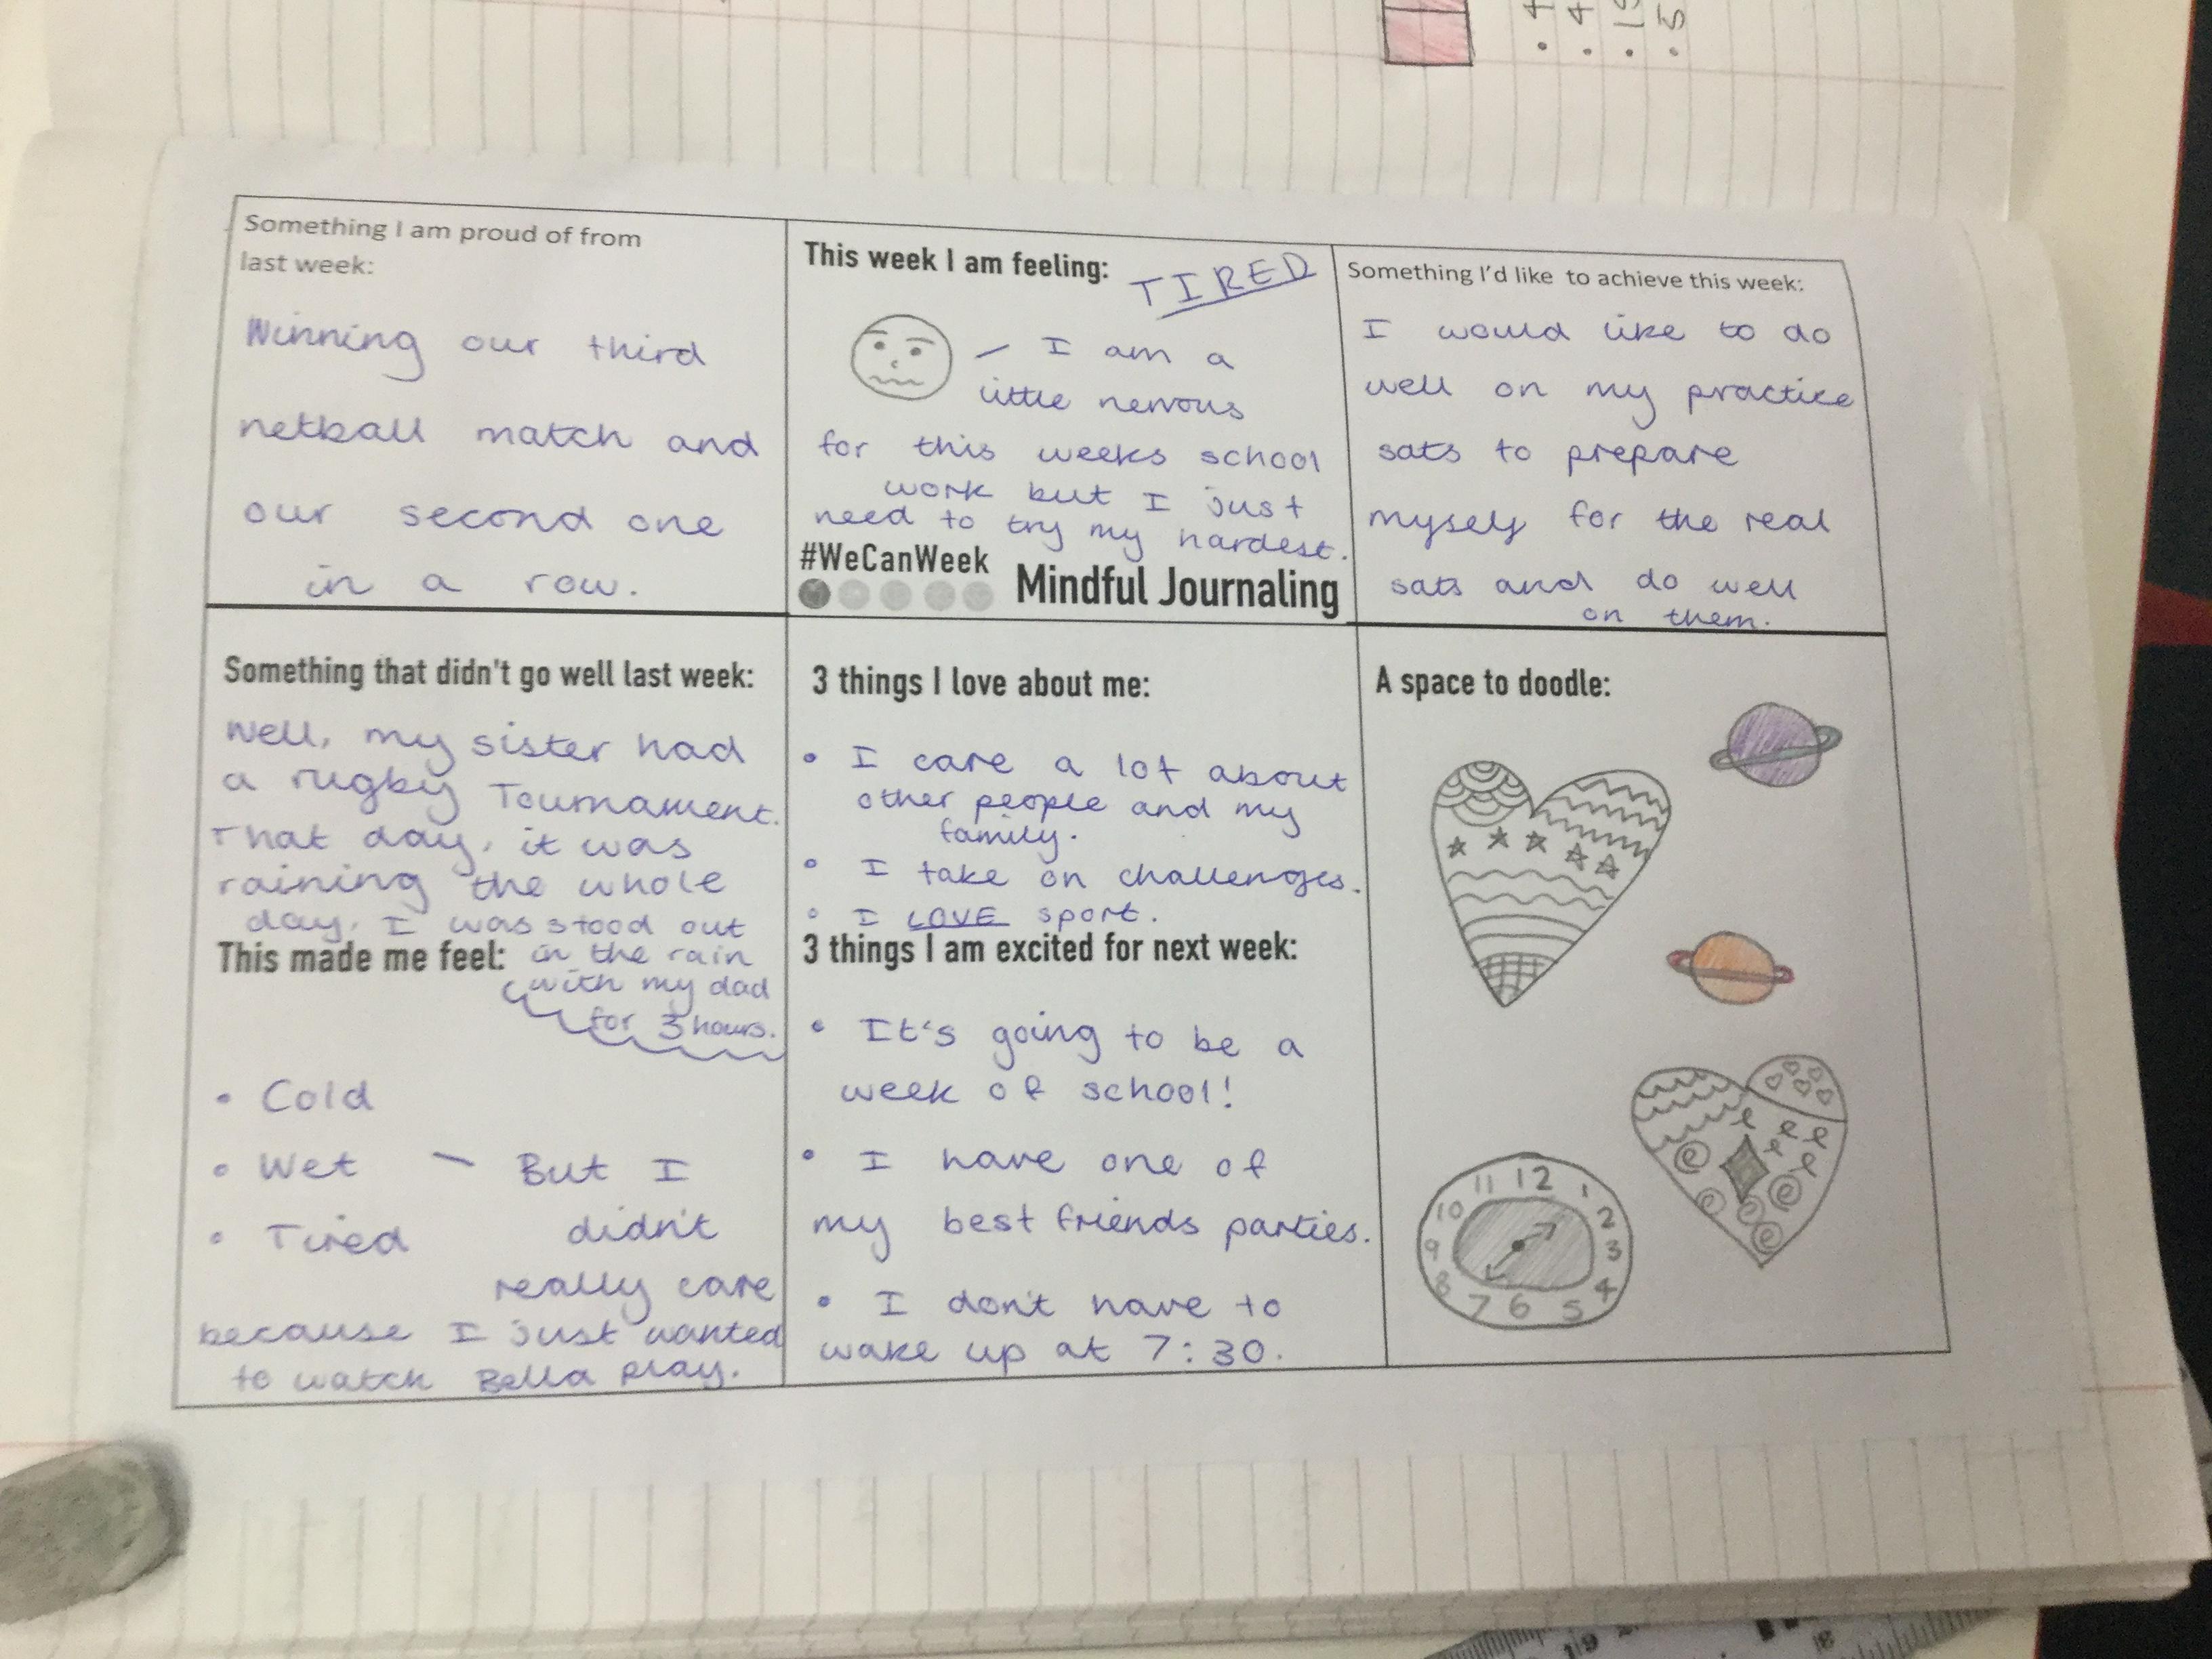 Something I am proud of from
last week:
Winning our third
netball match and
our second one
in a row.
This week I am feeling: TIRED
– I am a
little nervous
for this weeks school
work but I just
need to try my hardest.
#WeCanWeek
Mindful Journaling
Something I'd like to achieve this week:
I would like to do
well on my practice
sats to prepare
myself for the real
sats and do well
on them.
Something that didn't go well last week:
Well, my sister had
a rugby Tournament.
That day, it was
raining the whole
day. I was stood out
in the rain
with my dad
for 3 hours.
This made me feel:
• Cold
• Wet – But I
• Tired didn't
really care
because I just wanted
to watch Bella play.
3 things I love about me:
• I care a lot about
other people and my
family.
• I take on challenges.
• I LOVE sport.
3 things I am excited for next week:
• It's going to be a
week of school!
• I have one of
my best friends parties.
• I don't have to
wake up at 7:30.
A space to doodle:
11 12 1
10 2
9 3
8 4
7 6 5
19